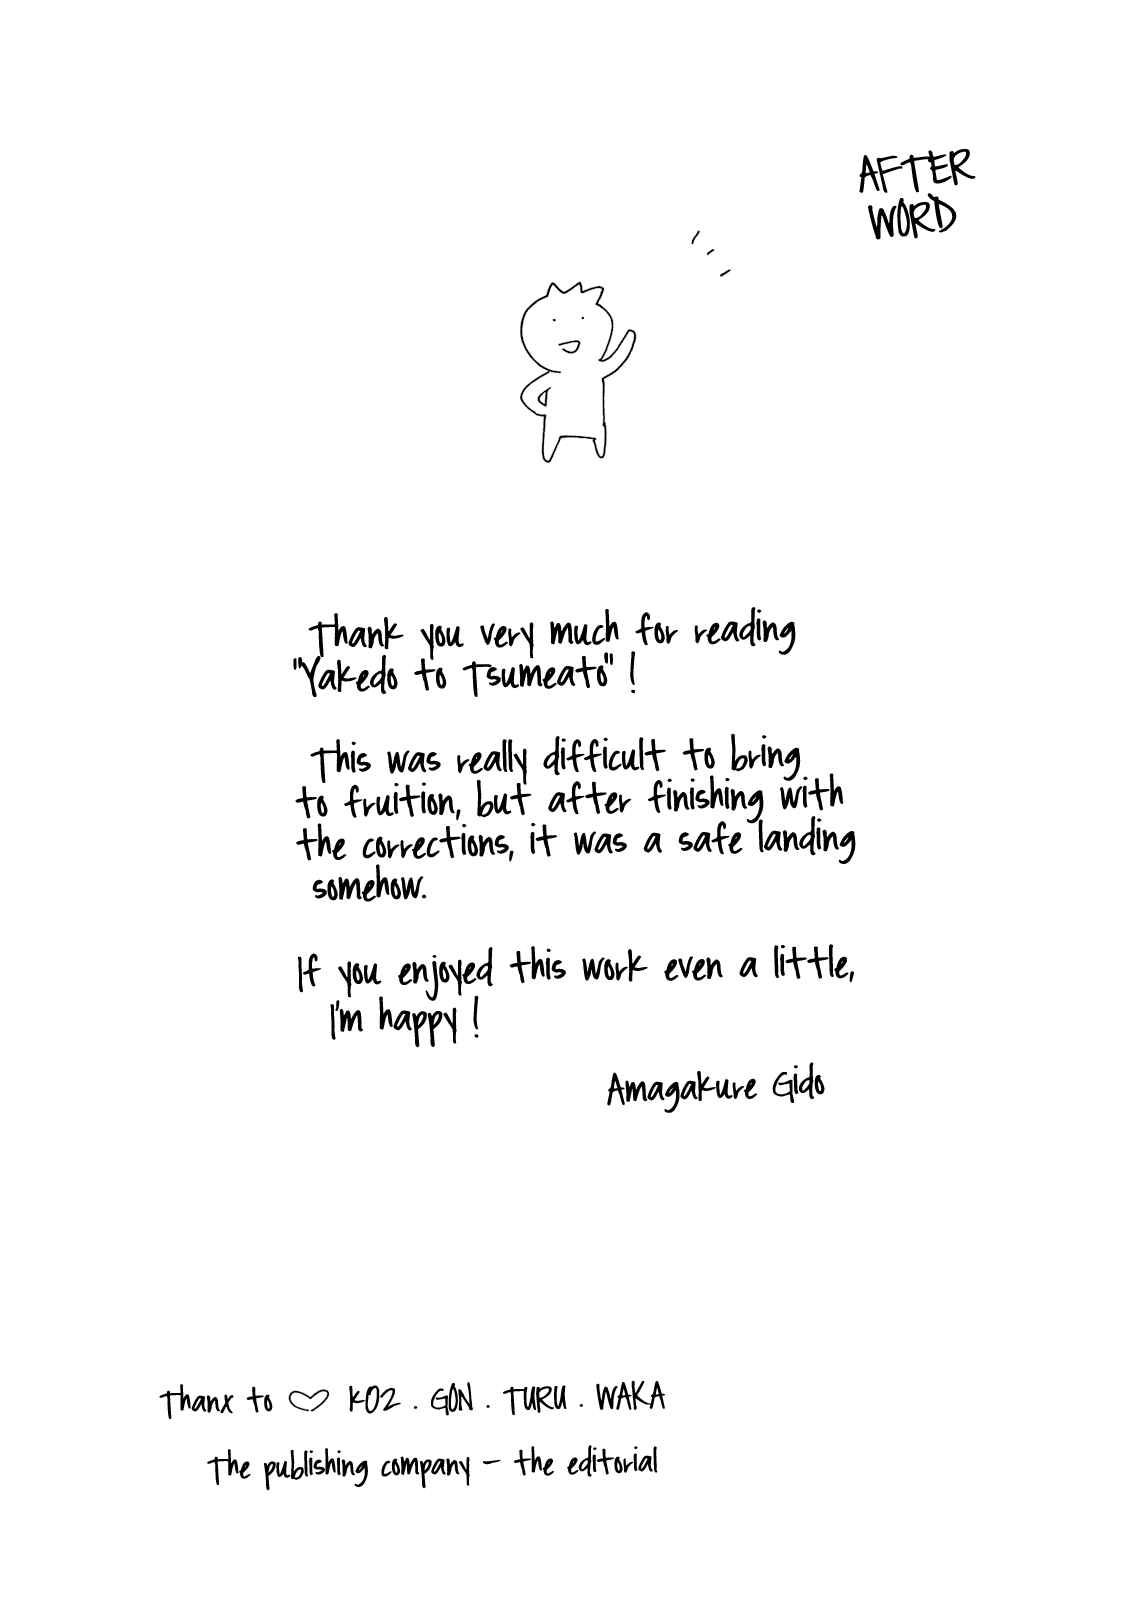 AFTER
WORD
Thank you very much for reading
"Yakedo to Tsumeato"!
This was really difficult to bring
to fruition, but after finishing with
the corrections, it was a safe landing
somehow.
If you enjoyed this work even a little,
I'm happy!
Amagakure Gido
Thanx to ♡ KO2 . GON . TURU . WAKA
The publishing company - the editorial